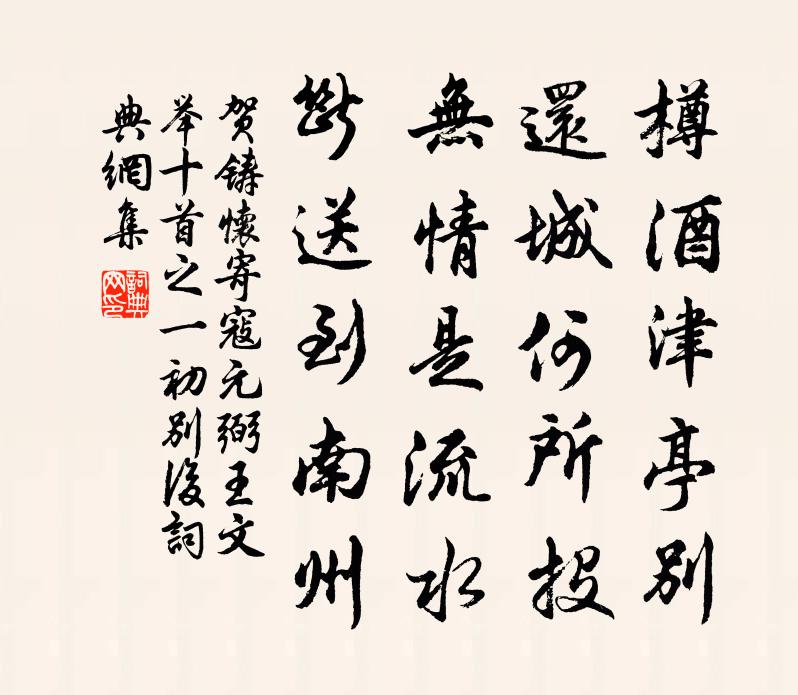 樽酒津亭別
還城何所投
無情是流水
斷送到南州
賀鑄懷寄寇元弼王文
舉十首之一初別後詞
典網集
詞典網印